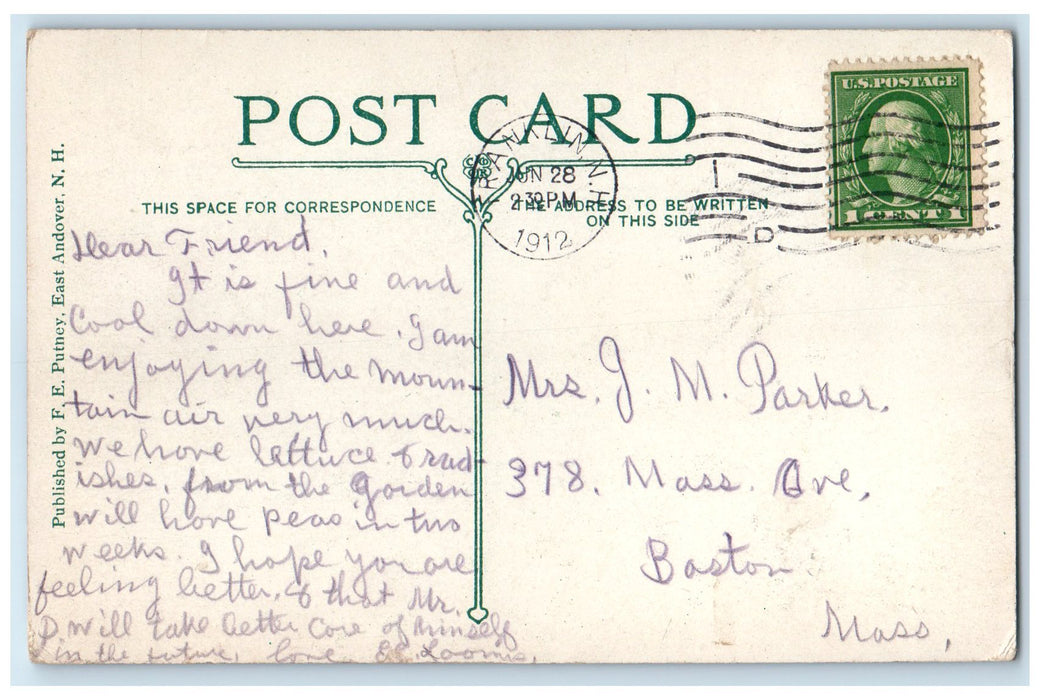 POST CARD
U.S. POSTAGE
1 CENT 1
FRANKLIN, N.H.
JUN 28
2 30 P.M.
1912
1
D
THIS SPACE FOR CORRESPONDENCE
THE ADDRESS TO BE WRITTEN
ON THIS SIDE
Published by F. E. Putney, East Andover, N. H.
Dear Friend,
It is fine and
Cool down here. I am
enjoying the moun-
tain air very much.
We have lettuce & rad-
ishes, from the garden
will have peas in two
weeks. I hope you are
feeling better, & that Mr.
D. will take better care of himself
in the future, love E. Loomis.
Mrs. J. M. Parker.
378. Mass. Ave,
Boston
Mass,